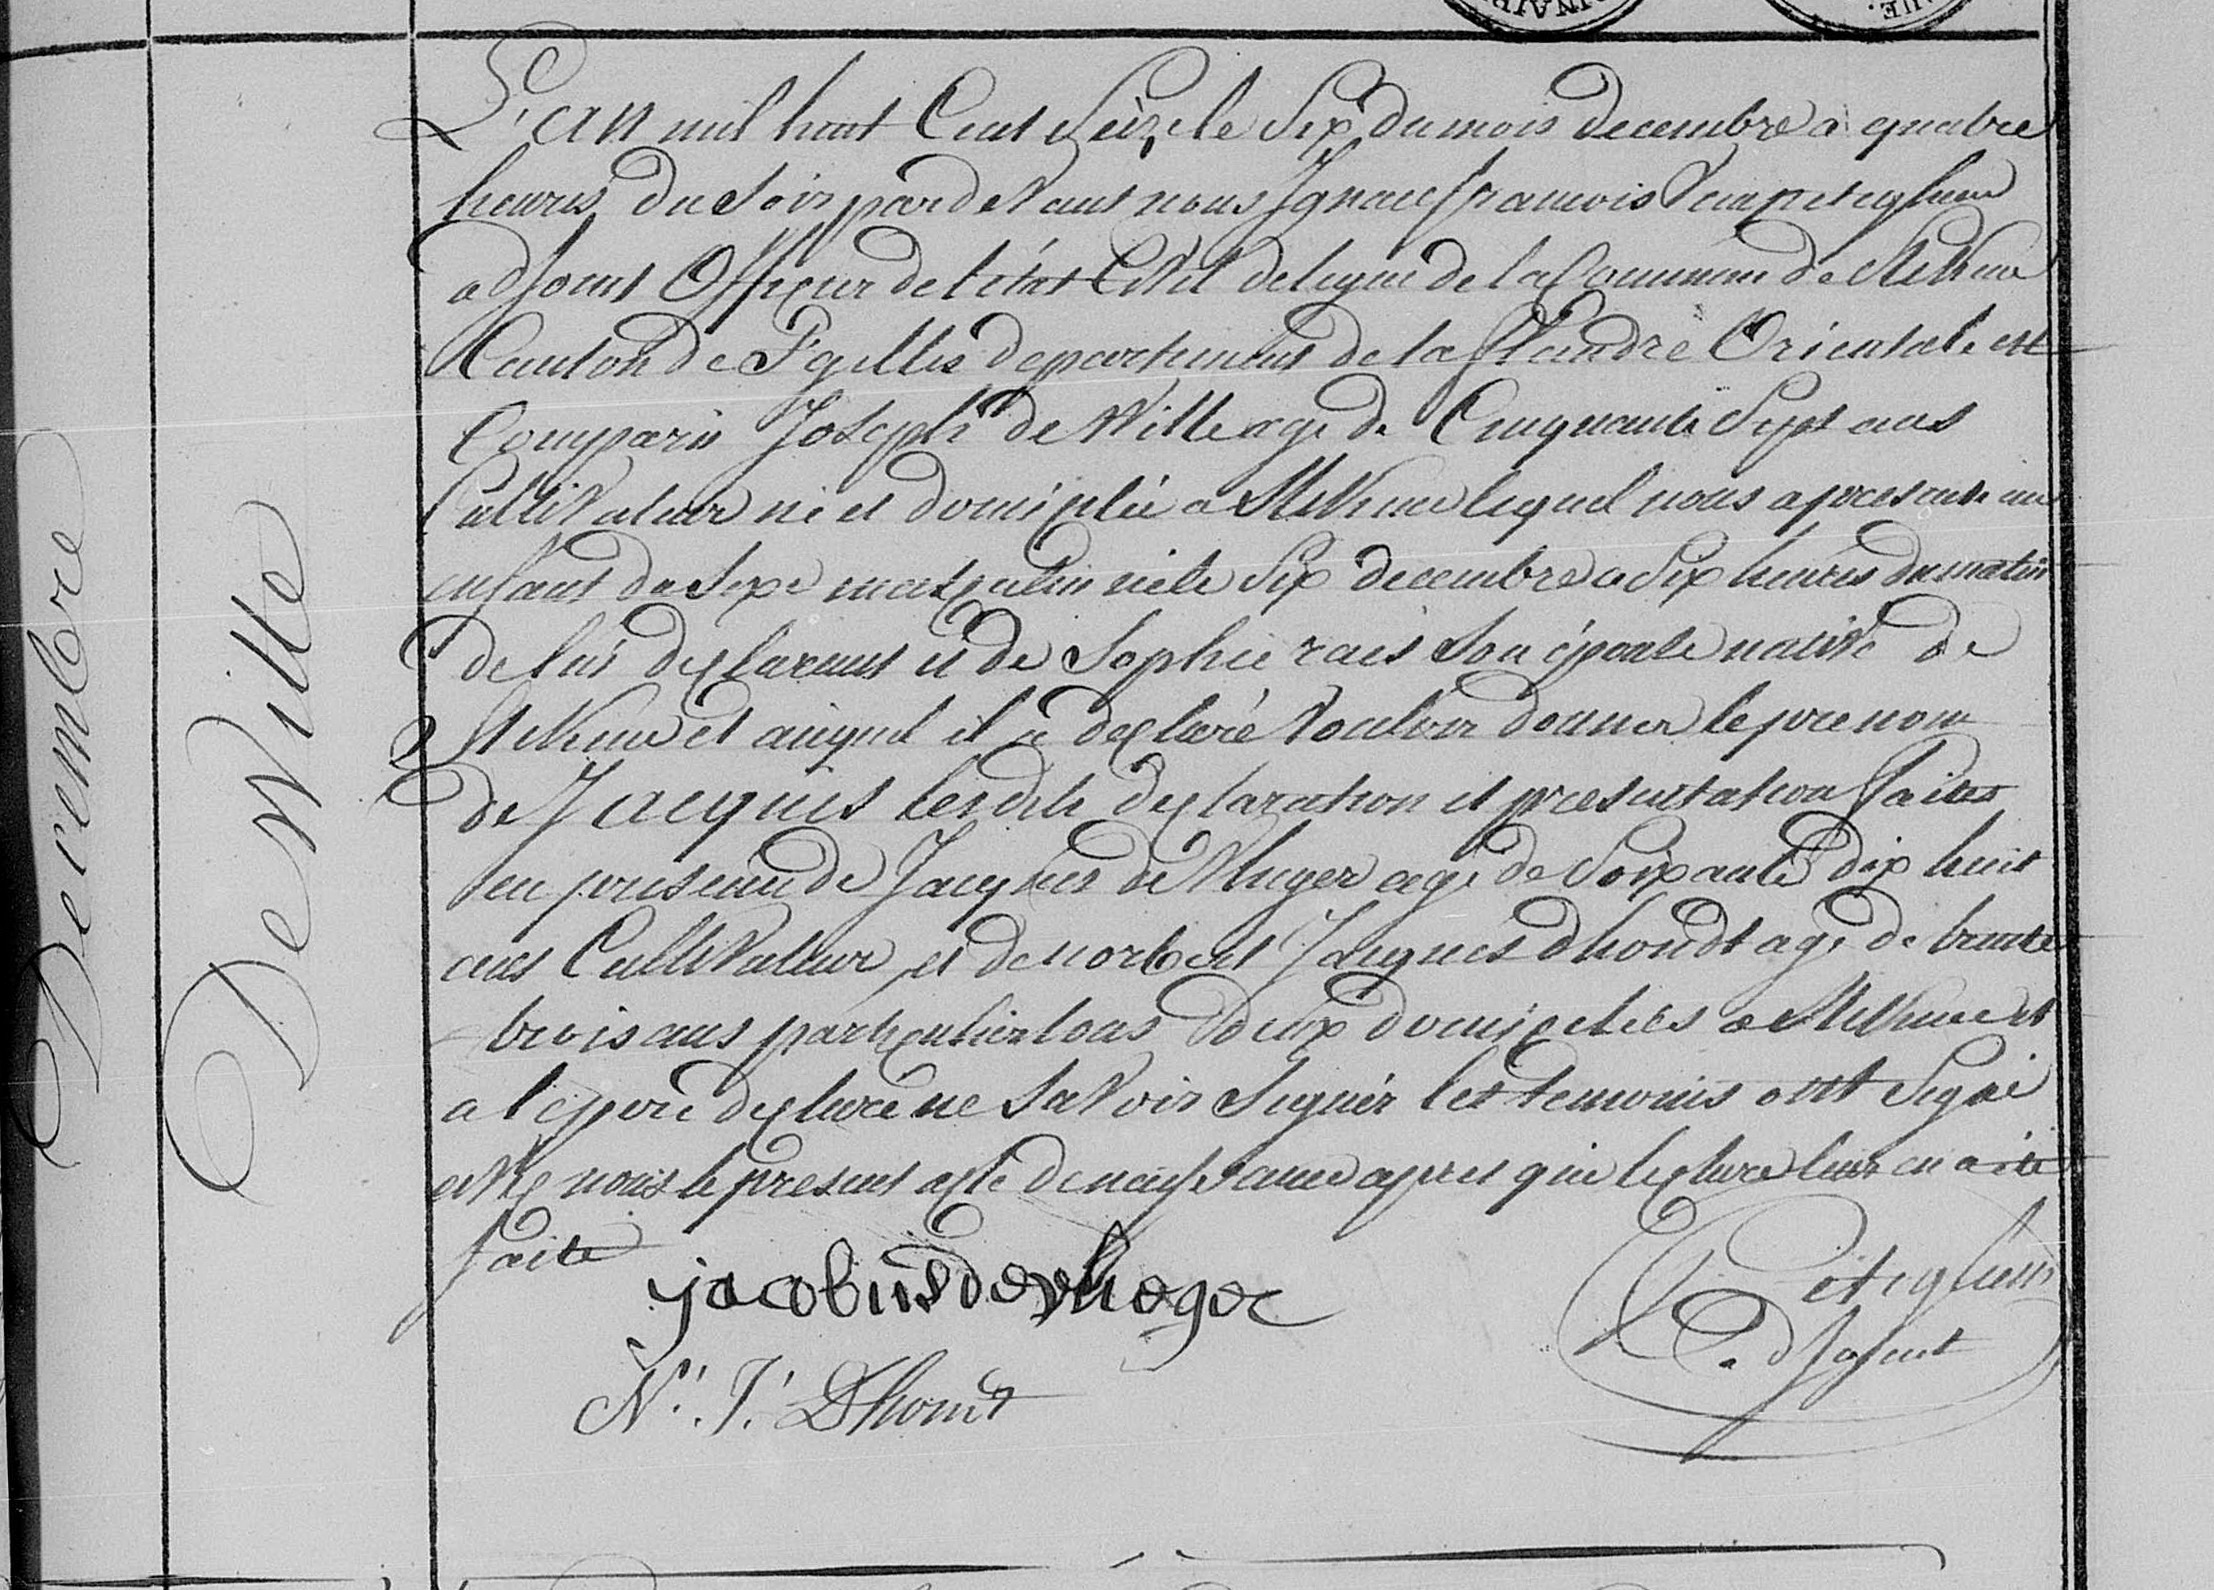 Decembre
De Wille
L'an mil huit Cent Seize le Six du mois decembre a quatre
heures du Soir par devant nous Ignace francois Van peteghem
adjoint Officier de l'état Civil delegué de la Commune de Melsene
Canton de St gilles departement de la flandre Orientale est
Comparu Joseph de Wille agé de Cinquante Sept ans
Cultivateur né et domicilié a Melsene lequel nous a presenté un
enfant du Sexe masculin né le Six decembre a Six heures du matin
de lui declarant et de Sophie rais Son épouse native de
Melsene et auquel il a declaré Vouloir donner le prenom
de Jacques les dite declaration et presentation faites
en presence de Jacques de Vlieger agé de Soixante dix huit
ans Cultivateur et de norbert Jacques dhondt agé de trente
trois ans particulier tous deux domiciliés a Melsene et
a le pere declaré ne Savoir Signér les temoins ont Signé
avec nous le present acte de naissance apres que lecture leur en a été
faite
jacobus de vlieger
Peteghem
adjoint
N. J. Dhondt